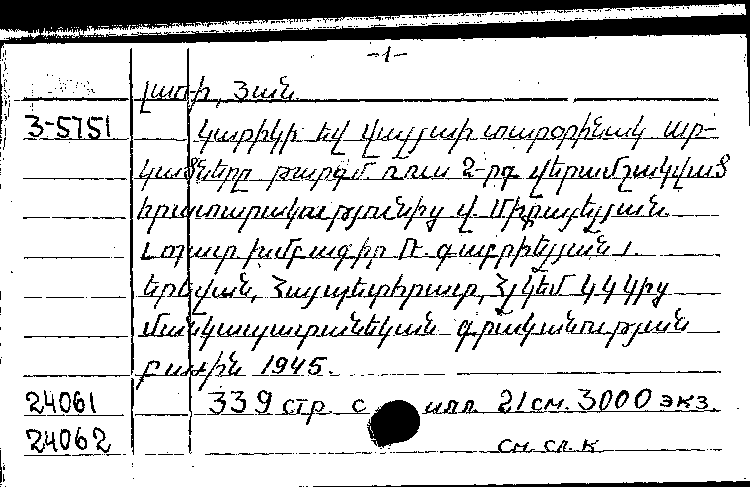 -1-
Լառի, Յան
3-5751 Կարիկի եվ Վալյայի տարօրինակ ար-
կածները թարգմ. ռուս 2-րդ վերամշակված
հրատարակությունից Վ. Միքայելյան
Նոտար խմբագիր Ռ. Գաբրիելյան).
Երեվան, Հայպետհրատ, ՀԼԿԵՄ ԿԿ կից
մանկապատանեկան գրականության
բաժին 1945.
24061 339 стр с илл. 21 см. 3000 экз.
24062 см. сл. к